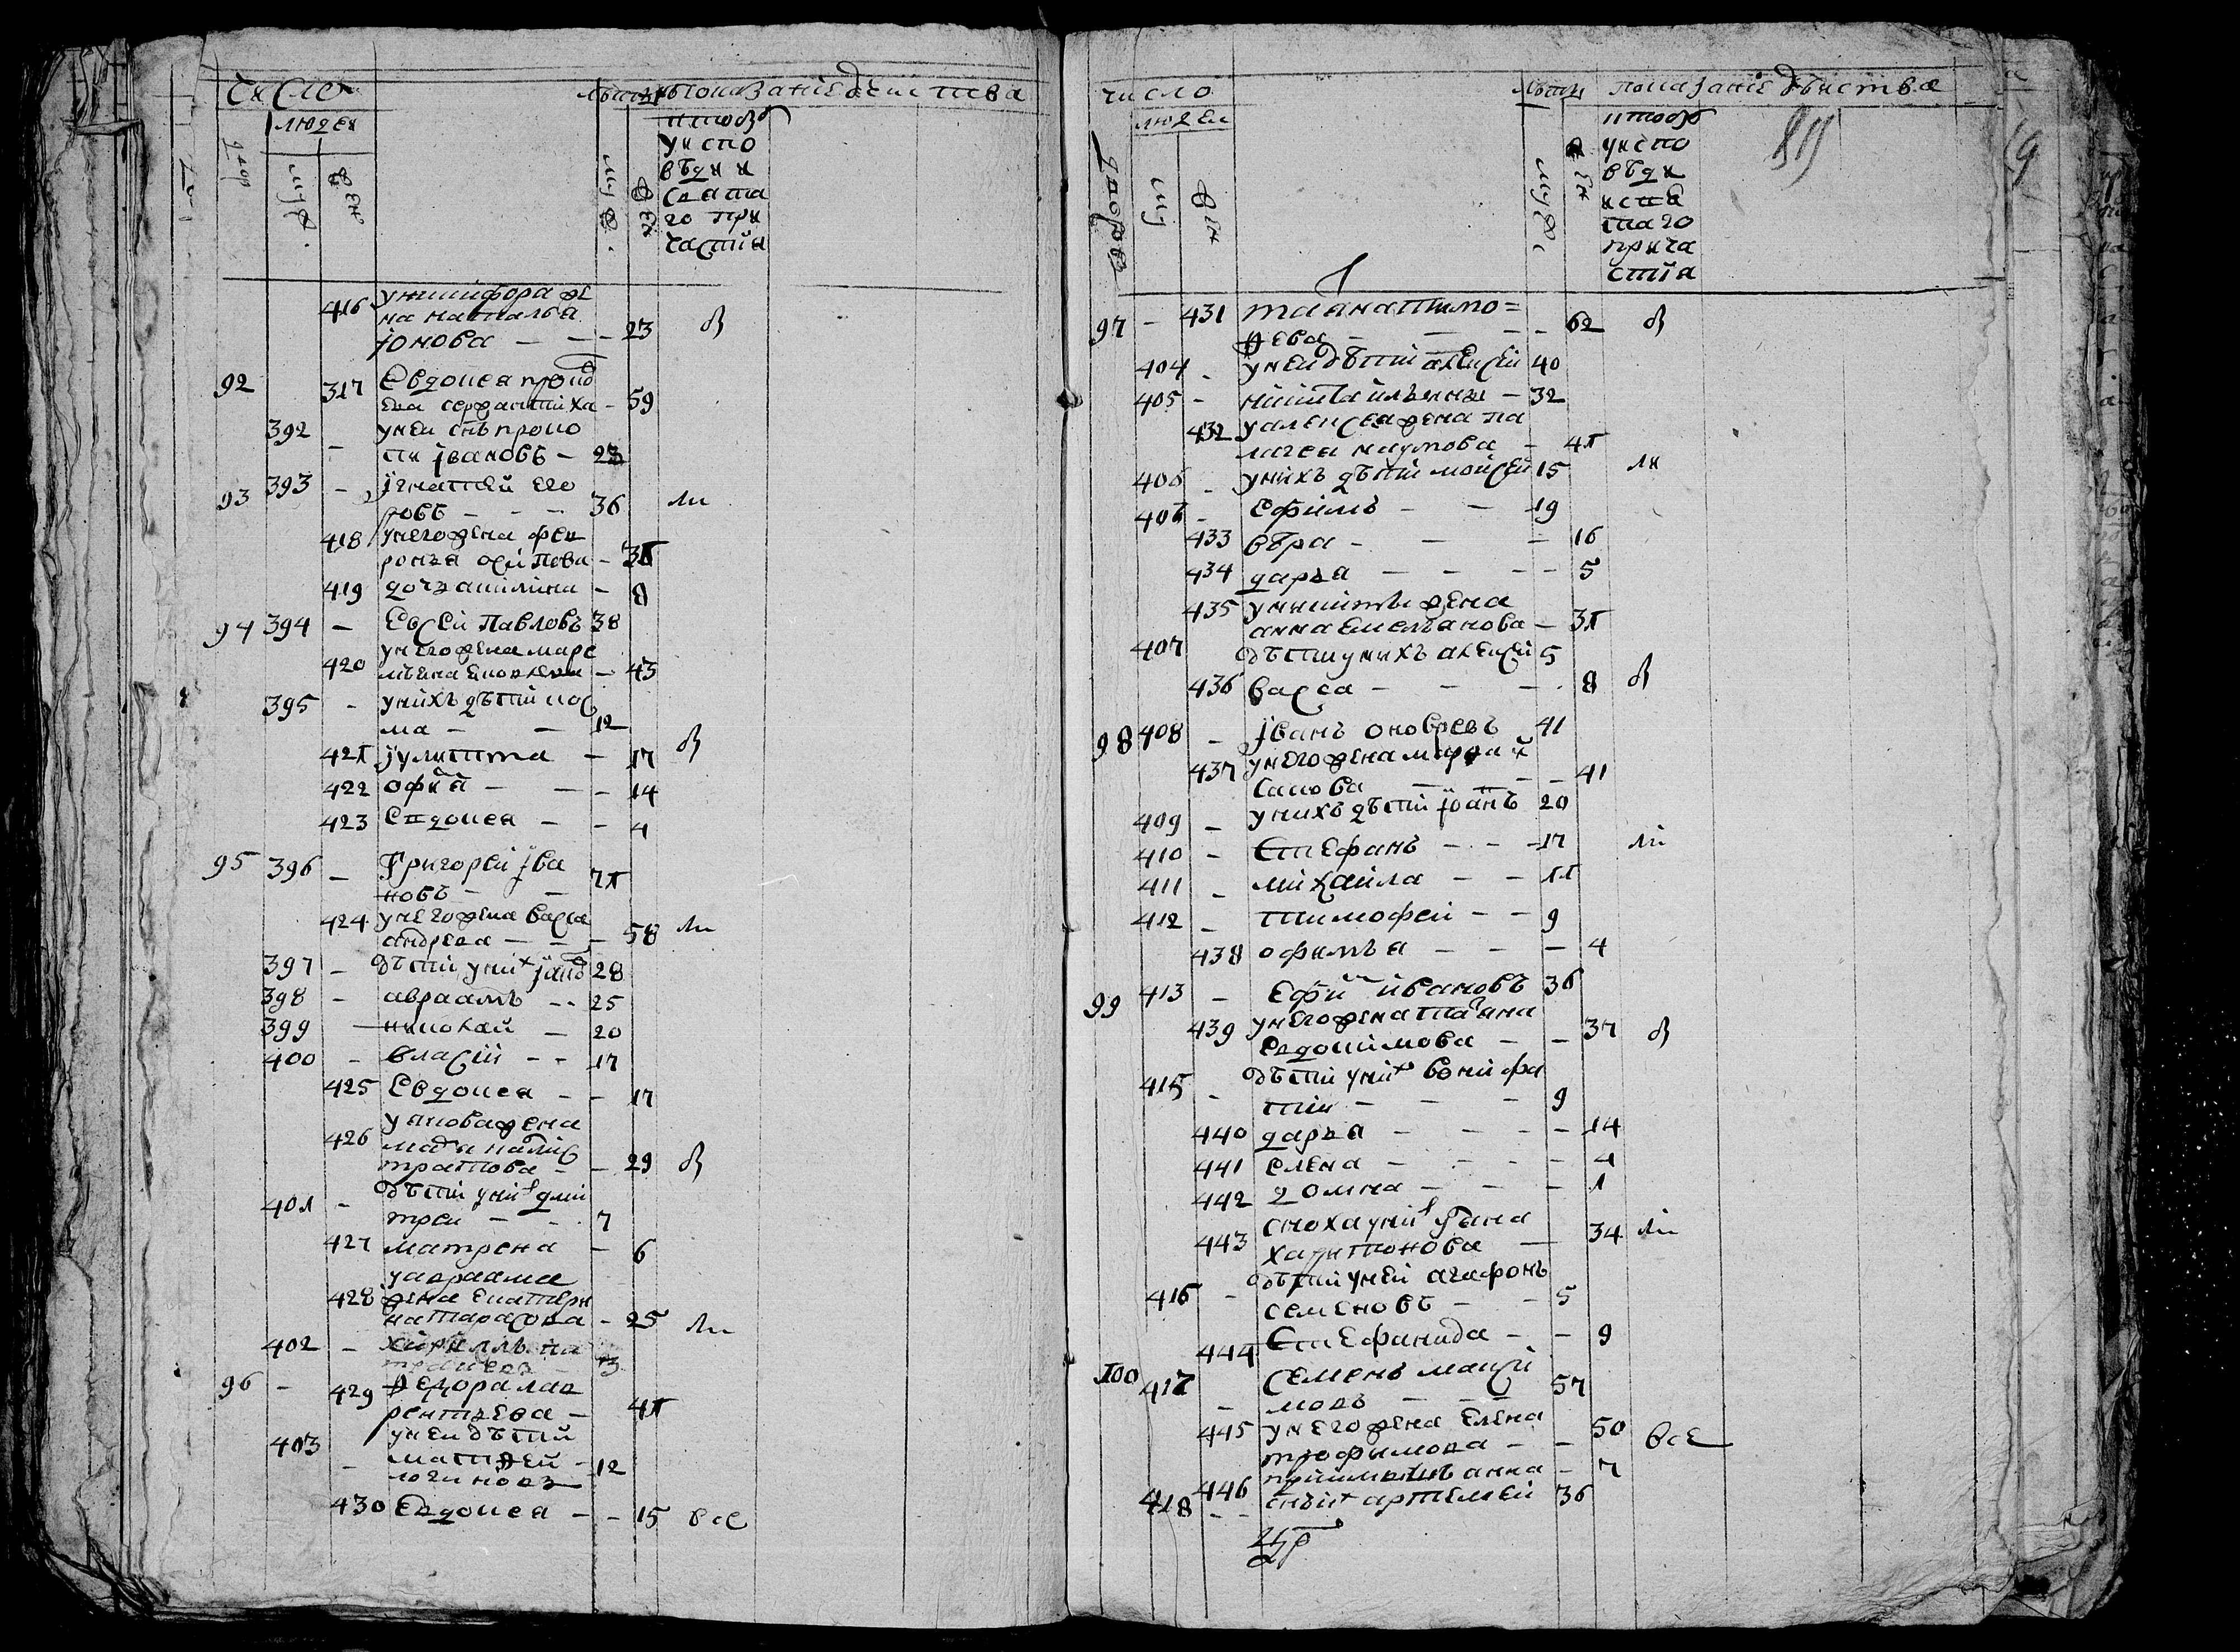 число лѣта показанїе дѣиства
людеи
двор муж. жен муж. жен
кто в
у испо
вѣди и
свята
го при
частия
416 у никифора же
на наталья
јонова — — — 23 в
92 317 Евдокея прокоф
ева сержантиха — 59
392 — у неи снъ проко
пи јвановъ — 23
93 393 — јгнатей его
ровъ — — — 36 ли
418 у него жена фев
ронья осипова — 31
419 дочь акилина — 8
94 394 — Евсей Павловъ 38
420 у него жена маре
мьяна — 43
395 — у нихъ дѣти кос
ма — — 12
421 јулитта — 17 в
422 офиа — — — 14
423 Евдокея — — 4
95 396 — Григорей јва
новъ — — 71
424 у него жена васса
андрева — — — 58 ли
397 — дѣти у них јаков 28
398 — авраамъ — — 25
399 — николай — 20
400 — власий — — 17
425 Евдокея — — 17
у якова жена
426
тратова — — 29 в
401 — дѣти у них дми
трей — — 7
427 матрена — 6
у авраама
428 жена екатери
на тарасова — 25 ли
402 —
13
96 — 429 Ѳедора лав
рентьева — 41
403 у неи дѣтй
— матѳей — 12
логиновъ
430 Евдокея — — 15 все
число лѣта показанїе дѣиства
людеи
дворовъ му жен муж. жен
кто в
у испо
вѣди
и свя
таго
прича
стїа
89
97 — 431 татиана тимо=
ѳева — — — 62 в
404 — у неи дѣти алексей 40
405 — никита ильины — 32
432 у алексея жена па
лагея наумова — 41
406 — у нихъ дѣти мойсей 15 ли
406 — Ефимъ — — 19
433 вѣра — — 16
434 дарья — — — — 5
435 у никиты жена
анна емельянова — 31
407 дѣти у нихъ алексей 5
436 васса — — — 8 в
98 408 — јванъ оноѳреевъ 41
437 у него жена марѳа и
сакова — — — 41
409 — у нихъ дѣти јванъ 20
410 — Стефанъ — — — 17 ли
411 — михайла — — 11
412 — тимофей — — 9
438 офимья — — — 4
99 413 — Ефим ивановъ 36
439 у него жена татьяна
Евдокимова — — 37 в
415 — дѣти у них вонифа
тии — — — 9
440 дарья — — — — 14
441 елена — — — — 4
442 домна — — — 1
443 сноха у них ульяна
харитонова — 34 ли
416 — дѣти у ней агафонъ
семеновъ — — 5
444 Стефанида — — 9
100 417 Семенъ макси
— мовъ — — — 57
445 у него жена Елена
трофимова — — 50 все
446 анна — 7
418 — — снъ их артемей 36